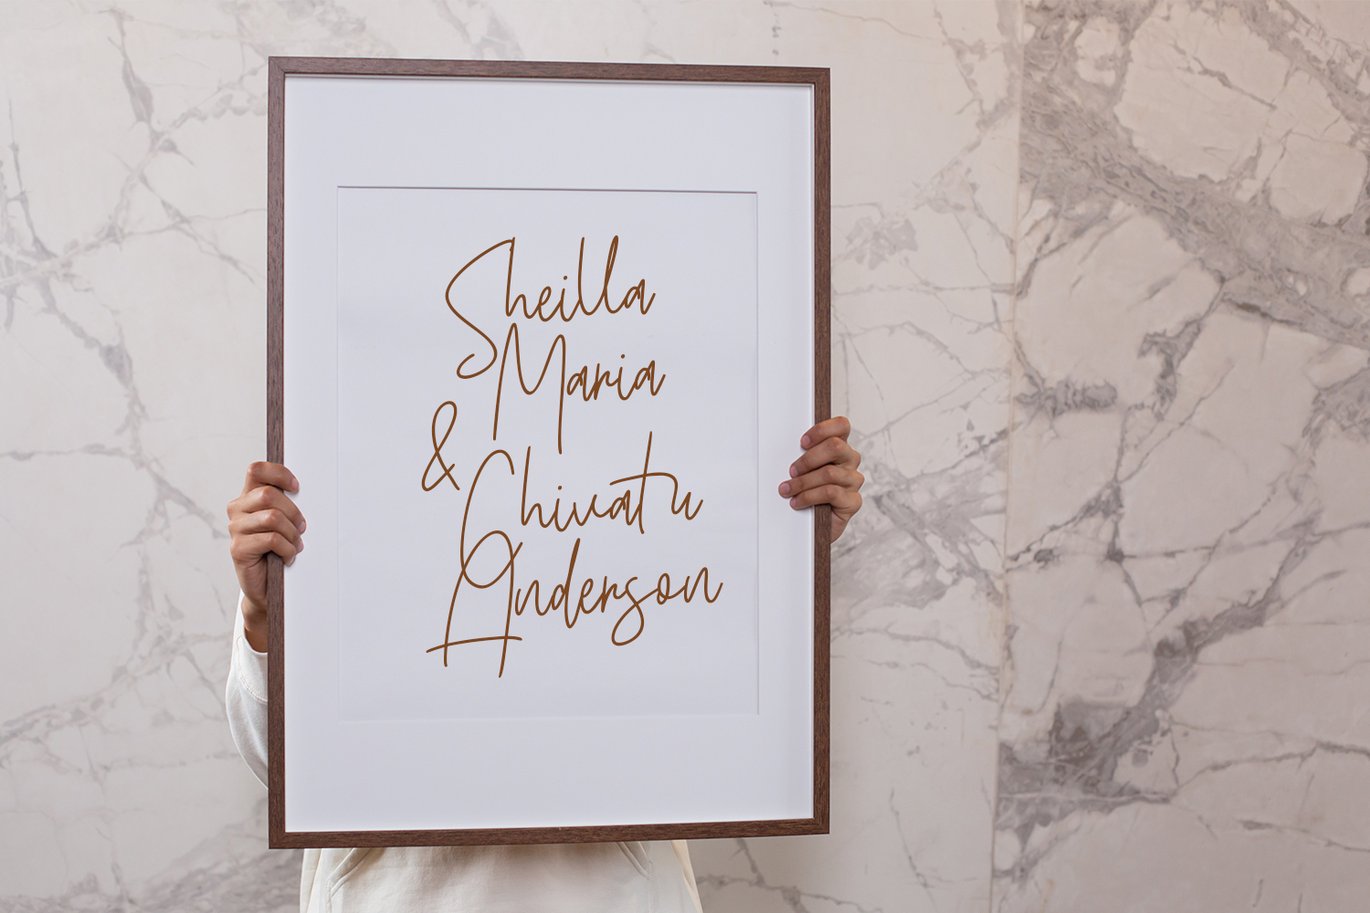 Sheilla
Maria
& Chivatu
Anderson